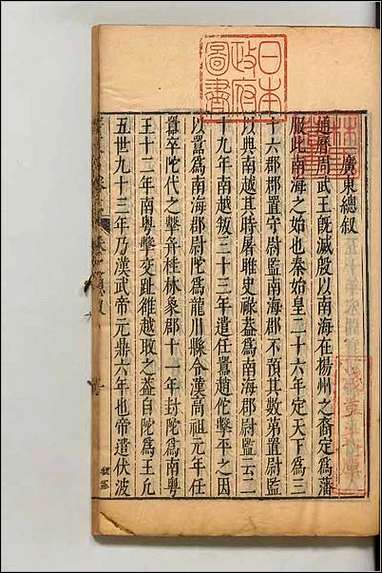 日本
政府
圖書
廣東總叙
通曆周武王旣滅殷以南海在揚州之裔定爲藩
服此南海之始也秦始皇二十六年定天下爲三
十六郡郡置守尉監南海郡不預其數第置尉監
以典南越其時屠睢史祿葢爲南海郡尉監云二
十九年南越叛三十三年遣任嚻趙佗擊平之因
以嚻爲南海郡尉佗爲龍川縣令漢高祖元年任
嚻卒佗代之擊并桂林象郡十一年封陀爲南粤
王十二年南粤擊交趾雒越取之葢自陀爲王凢
五世九十三年乃漢武帝元鼎六年也帝遣伏波